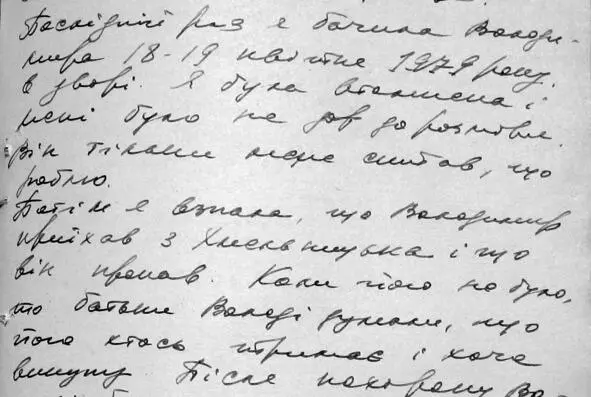 Послідній раз я бачила Володи-
мира 18-19 квітня 1979 року.
в дворі. Я була втомлена і
мені було не до розмови.
Він тільки мене спитав, що
роблю.
Потім я взнала, що Володимир
приїхав з Хмельницька і що
він пропав. Коли його не було,
то батьки Володі думали, що
його хтось тримає і хоче
викупу. Після похорону Во-